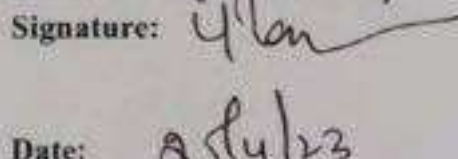 Signature:
Date: 25/4/23